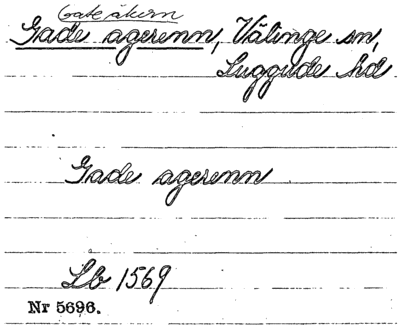 Gate åkern
Gade agerenn, Välinge sn,
Luggude hd
Gade agerenn
Lb 1569
Nr 5696.